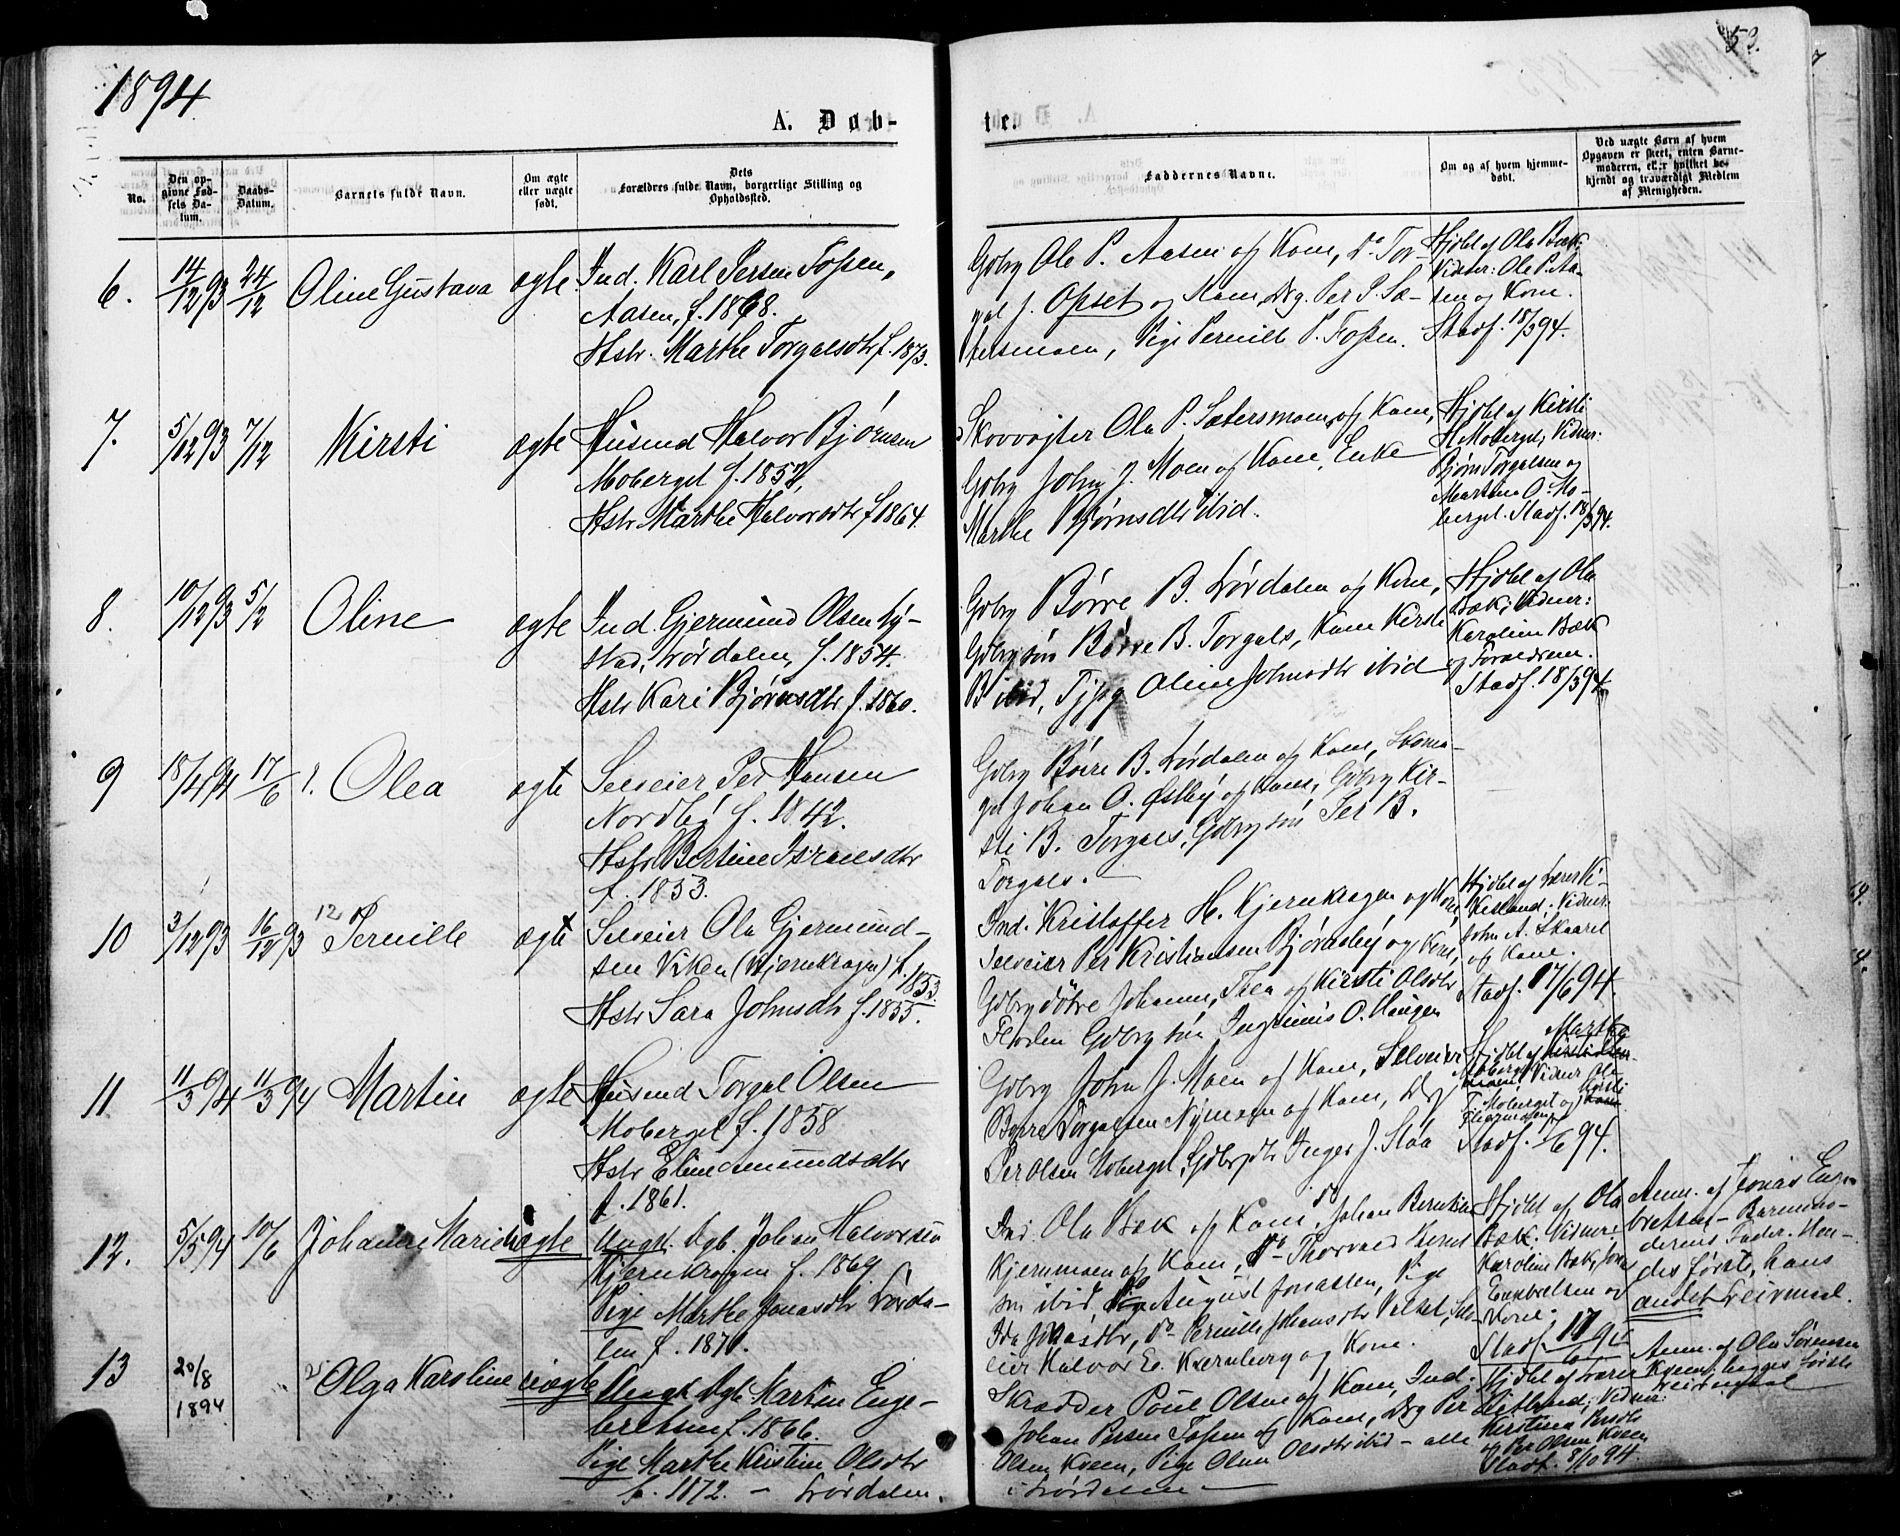 1894
53.
A. Døb-
te.
No.
Den op-
givne Fød-
sels Da-
tum.
Daabs-
Datum.
Barnets fulde Navn.
Om ægte
eller uægte
født.
Dets
Forældres fulde Navn, borgerlige Stilling og
Opholdssted.
Faddernes Navne.
Om og af hvem hjemme-
døbt.
Ved uægte Børn af hvem
Opgaven er skeet, enten Barne-
moderen, eller hvilket be-
kjendt og troværdigt Medlem
af Menigheden.
6. 14/12 93 24/12 Oline Gustava ægte
Ind. Karl Persen Fossen,
Aasen, f. 1868.
Hstr. Marthe Torgalsdtr f. 1873.
Gdbrg Ole P. Aasen og Kone, Do Tor-
gal J. Opset og Kone, Ukg. Per P. Sæ-
tersmoen, Pige Pernille P. Fossen.
Hjdbt af Ola Bæk.
Vidner: Ole P. Aa-
sen og Kone.
Stadf. 18/3 94.
7. 5/12 93 7/12 Kirsti ægte
Husmd Halvor Bjørnsen
Moberget f. 1852,
Hstr Marthe Halvorsdtr f 1864.
Skovvogter Ola P. Sætersmoen og Kone,
Gdbrg John J. Moen og Kone, Enke
Marthe Bjørnsdtr ibid.
Hjdbt af Kirsti
H. Moberget, Vidner:
Bjørn Torgalsen og
Martine O. Mo-
berget. Stadf. 18/3 94.
8. 10/12 93 5/12 Oline ægte
Ind. Gjermund Olsen Ny-
stad, Lørdalen, f. 1854.
Hstr Kari Bjørnsdtr f. 1860.
Gdbrg Børre B. Lørdalen og Kone,
Gdbrgsøn Børre B. Torgals, Kone Kirsti
B ibid, Tjpg Oline Johnsdtr ibid
Hjdbt af Ola
Bæk; Vidner:
Karoline Bæk
og Forældrene.
Stadf. 18/3 94.
9 18/4 94 17/6 Olea ægte
Selveier Per Hansen
Nordby f. 1842.
Hstr Bertine Israelsdtr
f. 1853.
Gdbrg Børre B. Lørdalen og Kone, Skoma-
ger Johan O. Østby og Kone, Gdbrg Kir-
sti B. Torgals, Gdbrgsøn Per B.
Torgals.
10 3/12 93 16/12 93 Pernille ægte
Selveier Ola Gjermund-
sen Viken (Kjernkrogen) f. 1853
Hstr Sara Johnsdtr f. 1855.
Ind. Kristoffer H. Kjernkrogen og Kone,
Selveier Per Kristiansen Bjørnsby og Kone,
Gdbrgdøtre Johanne, Thea og Kirsti Olsdtr
Floden Gdbrgsøn Ingrinius O. Haugen
Hjdbt af Lærer Ki-
Vidner
John A. Skaaret
og Kone.
Stadf. 17/6 94.
11 11/3 94 11/3 94 Martin ægte
Husmd Torgal Olsen
Moberget f. 1858
Hstr Eline Amundsdtr
f. 1861.
Gdbrg John J. Moen og Kone, Selveier
Børre Torgalsen Nymoen og Kone, Ukg
Per Olsen Moberget, Gdbrgdtr Inger J. Støa
Hjdbt af Marthe
Moberget, Vidner Ola
Moberget og Kirsti
Stadf. 17/6 94.
12. 5/5 94 10/6 Johanne Marie uægte
Ungk. Dgb. Johan Halvorsen
Kjernkrogen f. 1869.
Pige Marthe Jonasdtr Lørda-
len f. 1871.
Ind. Ola Bæk og Kone, Do Johan Berntsen
Kjernmoen og Kone, Do Thorvald Bernt-
sen ibid, August Jonassen, Pige
Ida Jonasdtr, Do Pernille Johansdtr Veltet, Selv-
eier Halvor E. Kvernberg og Kone.
Hjdbt af Ola
Bæk. Vidner:
Karoline Bæk, Jonas
Engebretsen og
Kone;
Stadf. 17/6 94
Anm. af Jonas Enge-
bretsen - Barnemo-
derens Fader. Hen-
des første, hans
andet Leiermaal.
13 20/8 1894 Olga Karoline uægte
Ungk Dgb Martin Enge-
bretsen f. 1866.
Pige Marthe Kristine Olsdtr
f. 1872. - Lørdalen.
Skrædder Poul Olsen og Kone, Ind.
Johan Persen Fossen og Kone, Ukg Per
Olsen Kveen, Pige Oline Olsdtr ibid - alle
i Lørdalen
Hjdbt af Lærer
Vidner:
Kirstine Persdtr
og Per Olsen Kveen
Stadf. 8/10 94.
Anm. af Ola Sørensen
Kveen, begges første
Leiermaal